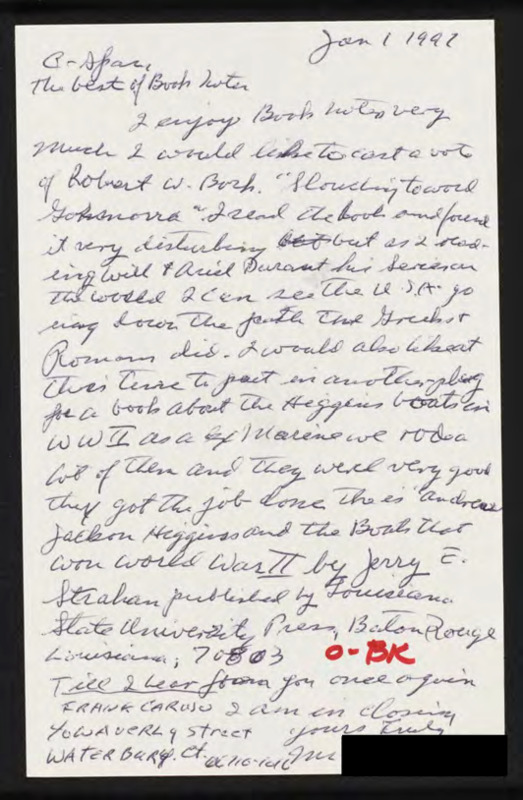 Jan 1 1997
C-Span,
The best of Book Notes
I enjoy Book notes very
much I would like to cast a vote
of Robert W. Bork. "Slouching toword
Gohmorra" I read the book and found
it very disturbing but as I read-
ing Will & Ariel Durant his Series on
the world I can see the U.S.A. go
ing down the path the Greeks &
Romans did. I would also like at
this time to put in another plug
for a book about the Higgins boats in
WWII as a ex Marine we rode a
lot of them and they were very good
they got the job done. The is "Andrew
Jackson Higgins and the Boats that
won world War II by Jerry E.
Strahan published by Louisiana
State University Press, Baton Rouge
Louisiana, 70803 O-BK
Till I hear from you once again
FRANK CARUSO I am in closing
40 WAVERLY STREET yours Truly
WATERBURY. Ct.